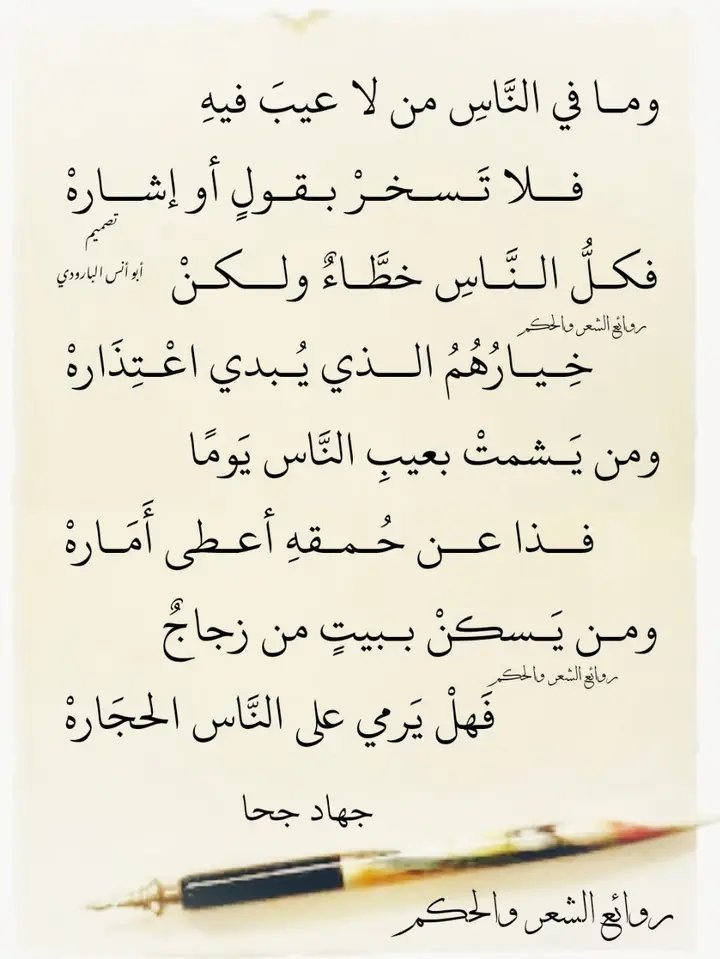 ومـا في النَّاسِ من لا عيبَ فيهِ
فــلا تَـسـخـرْ بـقـولٍ أو إشـارهْ
تصميم
أبو أنس البارودي
فكـلُّ الـنَّـاسِ خطَّـاءٌ ولــكـنْ
روائع الشعر والحكم
خِـيـارُهُمُ الــذي يُـبدي اعْـتِذَارهْ
ومن يَـشمتْ بعيبِ النَّاس يَومًا
فــذا عــن حُـمـقهِ أعـطى أَمَـارهْ
ومـن يَـسكنْ بـبيتٍ من زجاجٌ
روائع الشعر والحكم
فَهلْ يَرمي على النَّاس الحجَارهْ
جهاد جحا
روائع الشعر والحكم